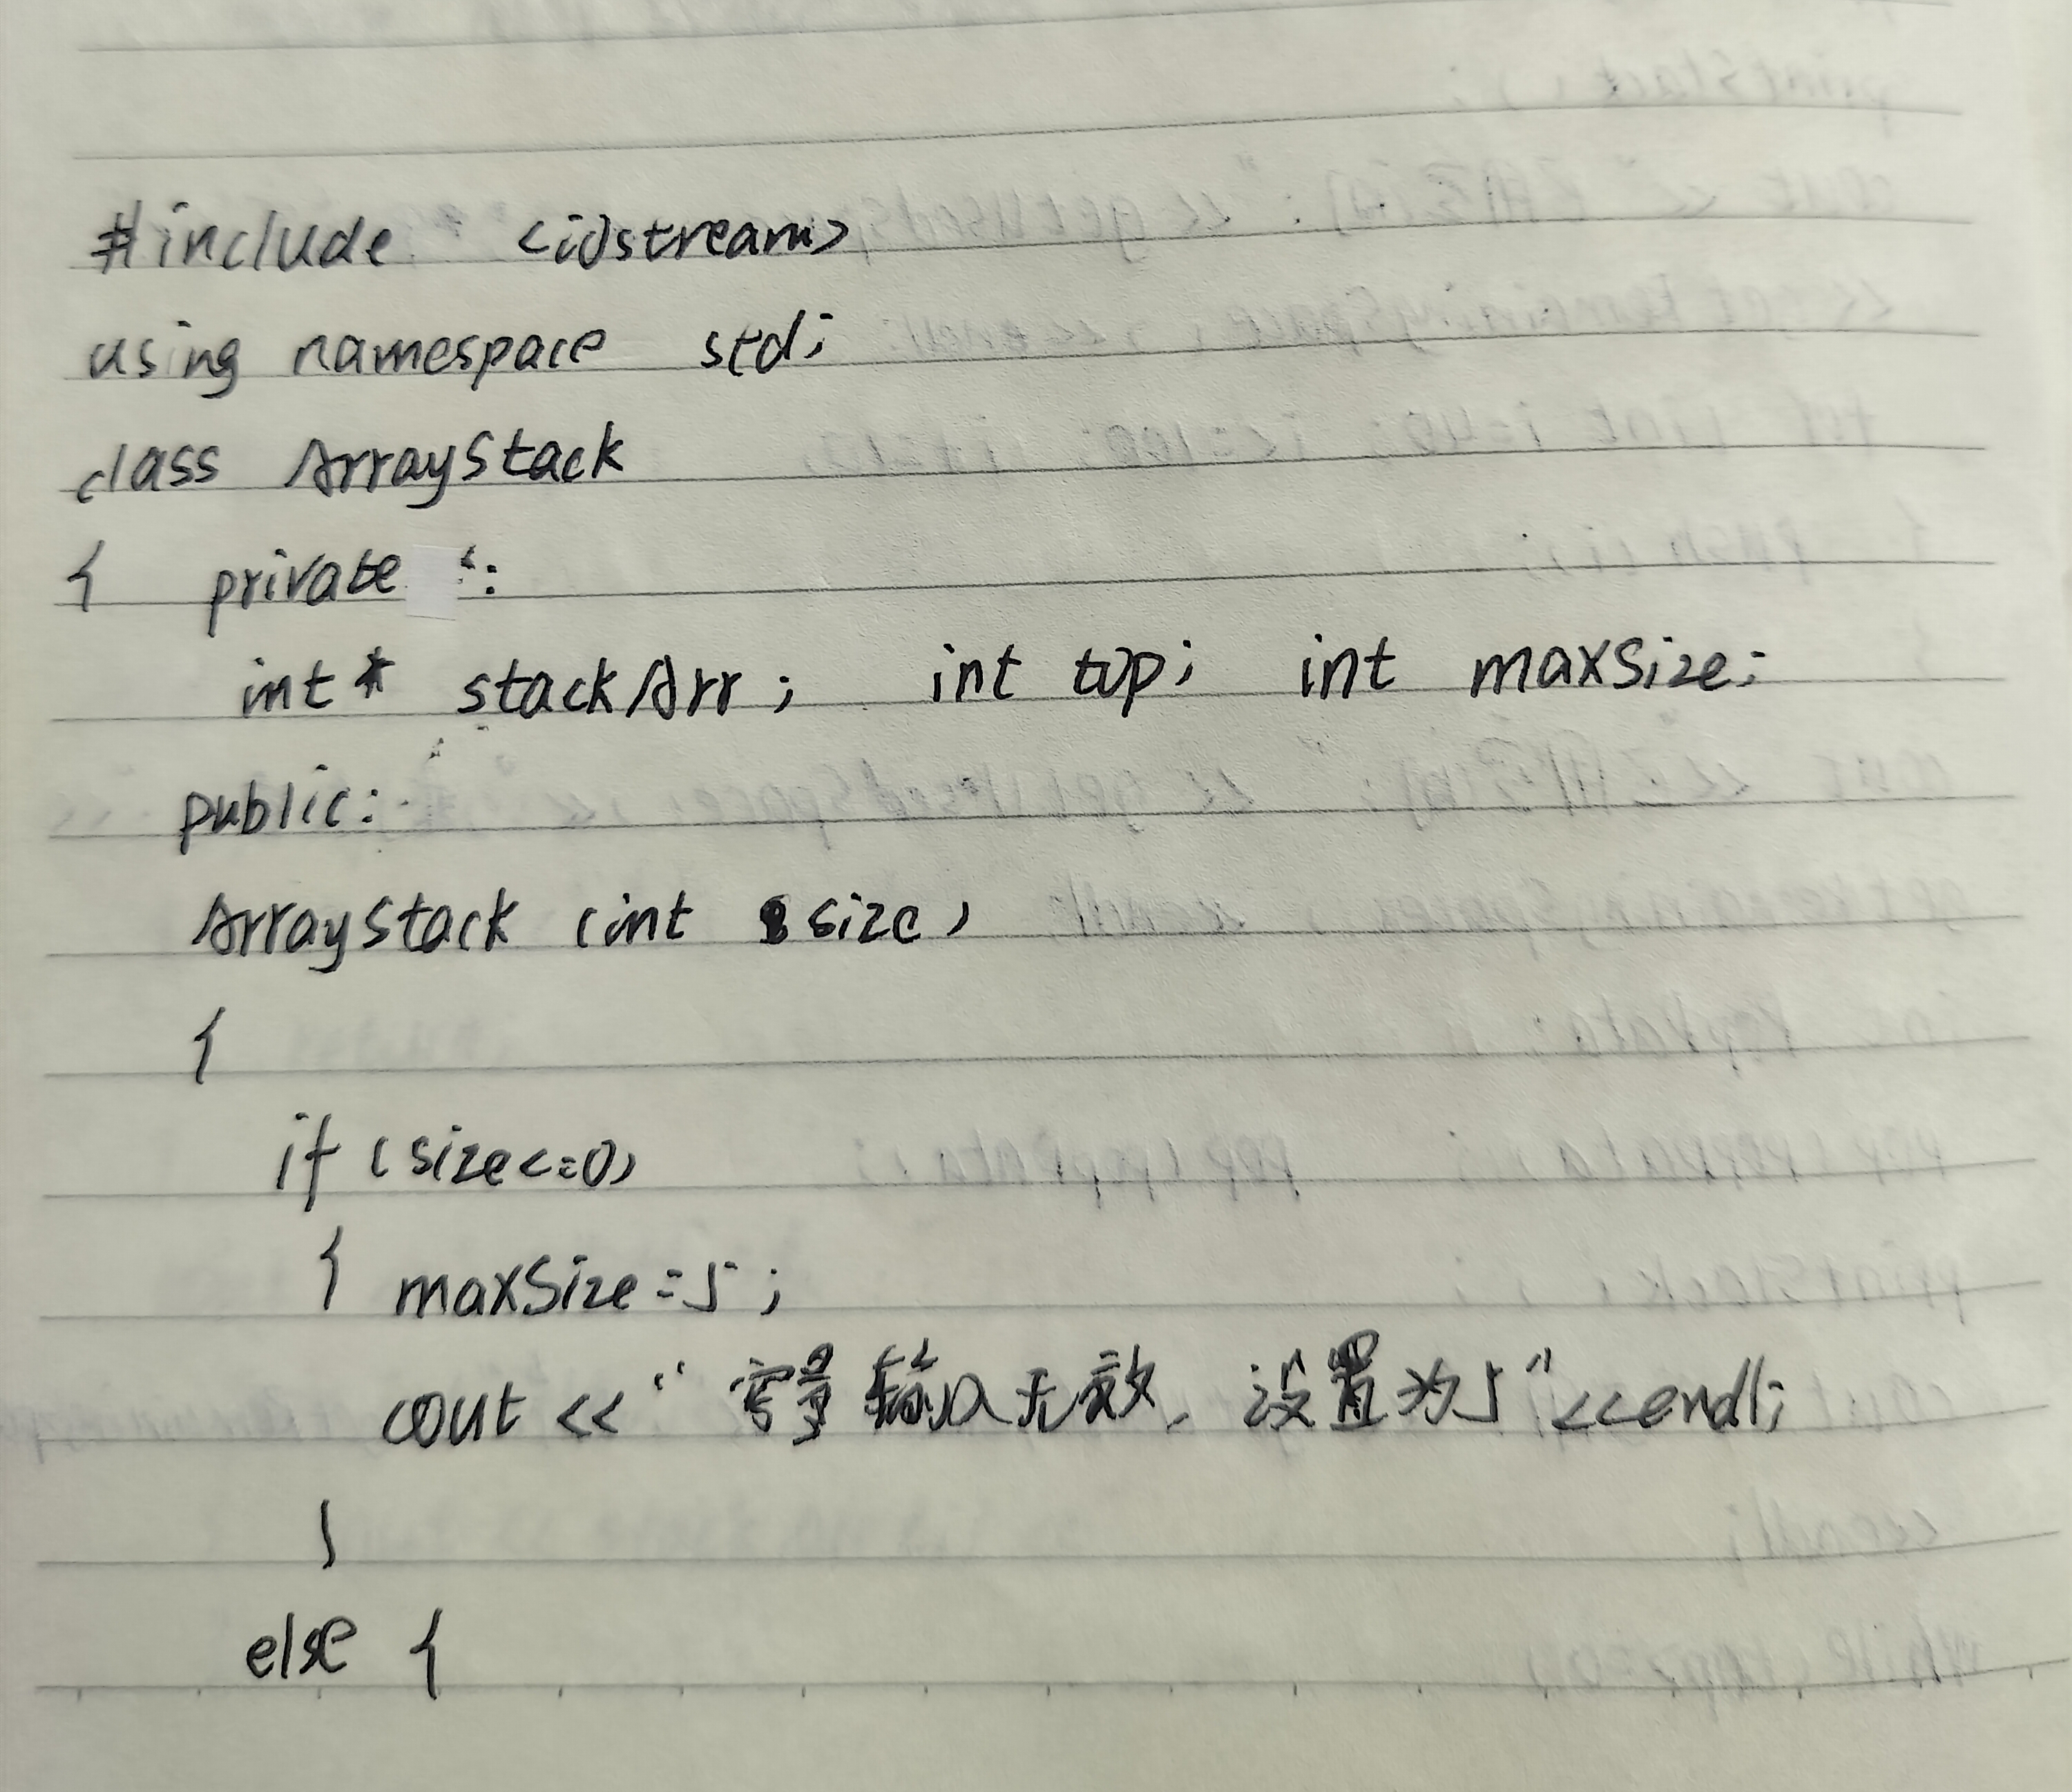 #include <iostream>
using namespace std;
class ArrayStack
{ private :
int* stackArr; int top; int maxSize;
public:
ArrayStack (int size)
{
if (size<=0)
{ maxSize=5;
cout << " 容量输入无效, 设置为5"<<endl;
}
else {